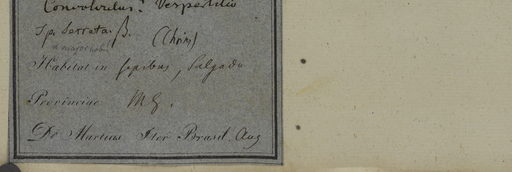 Convolvulus? Vespertilio
Sp. Serrata. β.
(Chois)
Habitat in sepibus, Salgado
Provinciae MG.
Dr Martius Iter Brasil. Aug